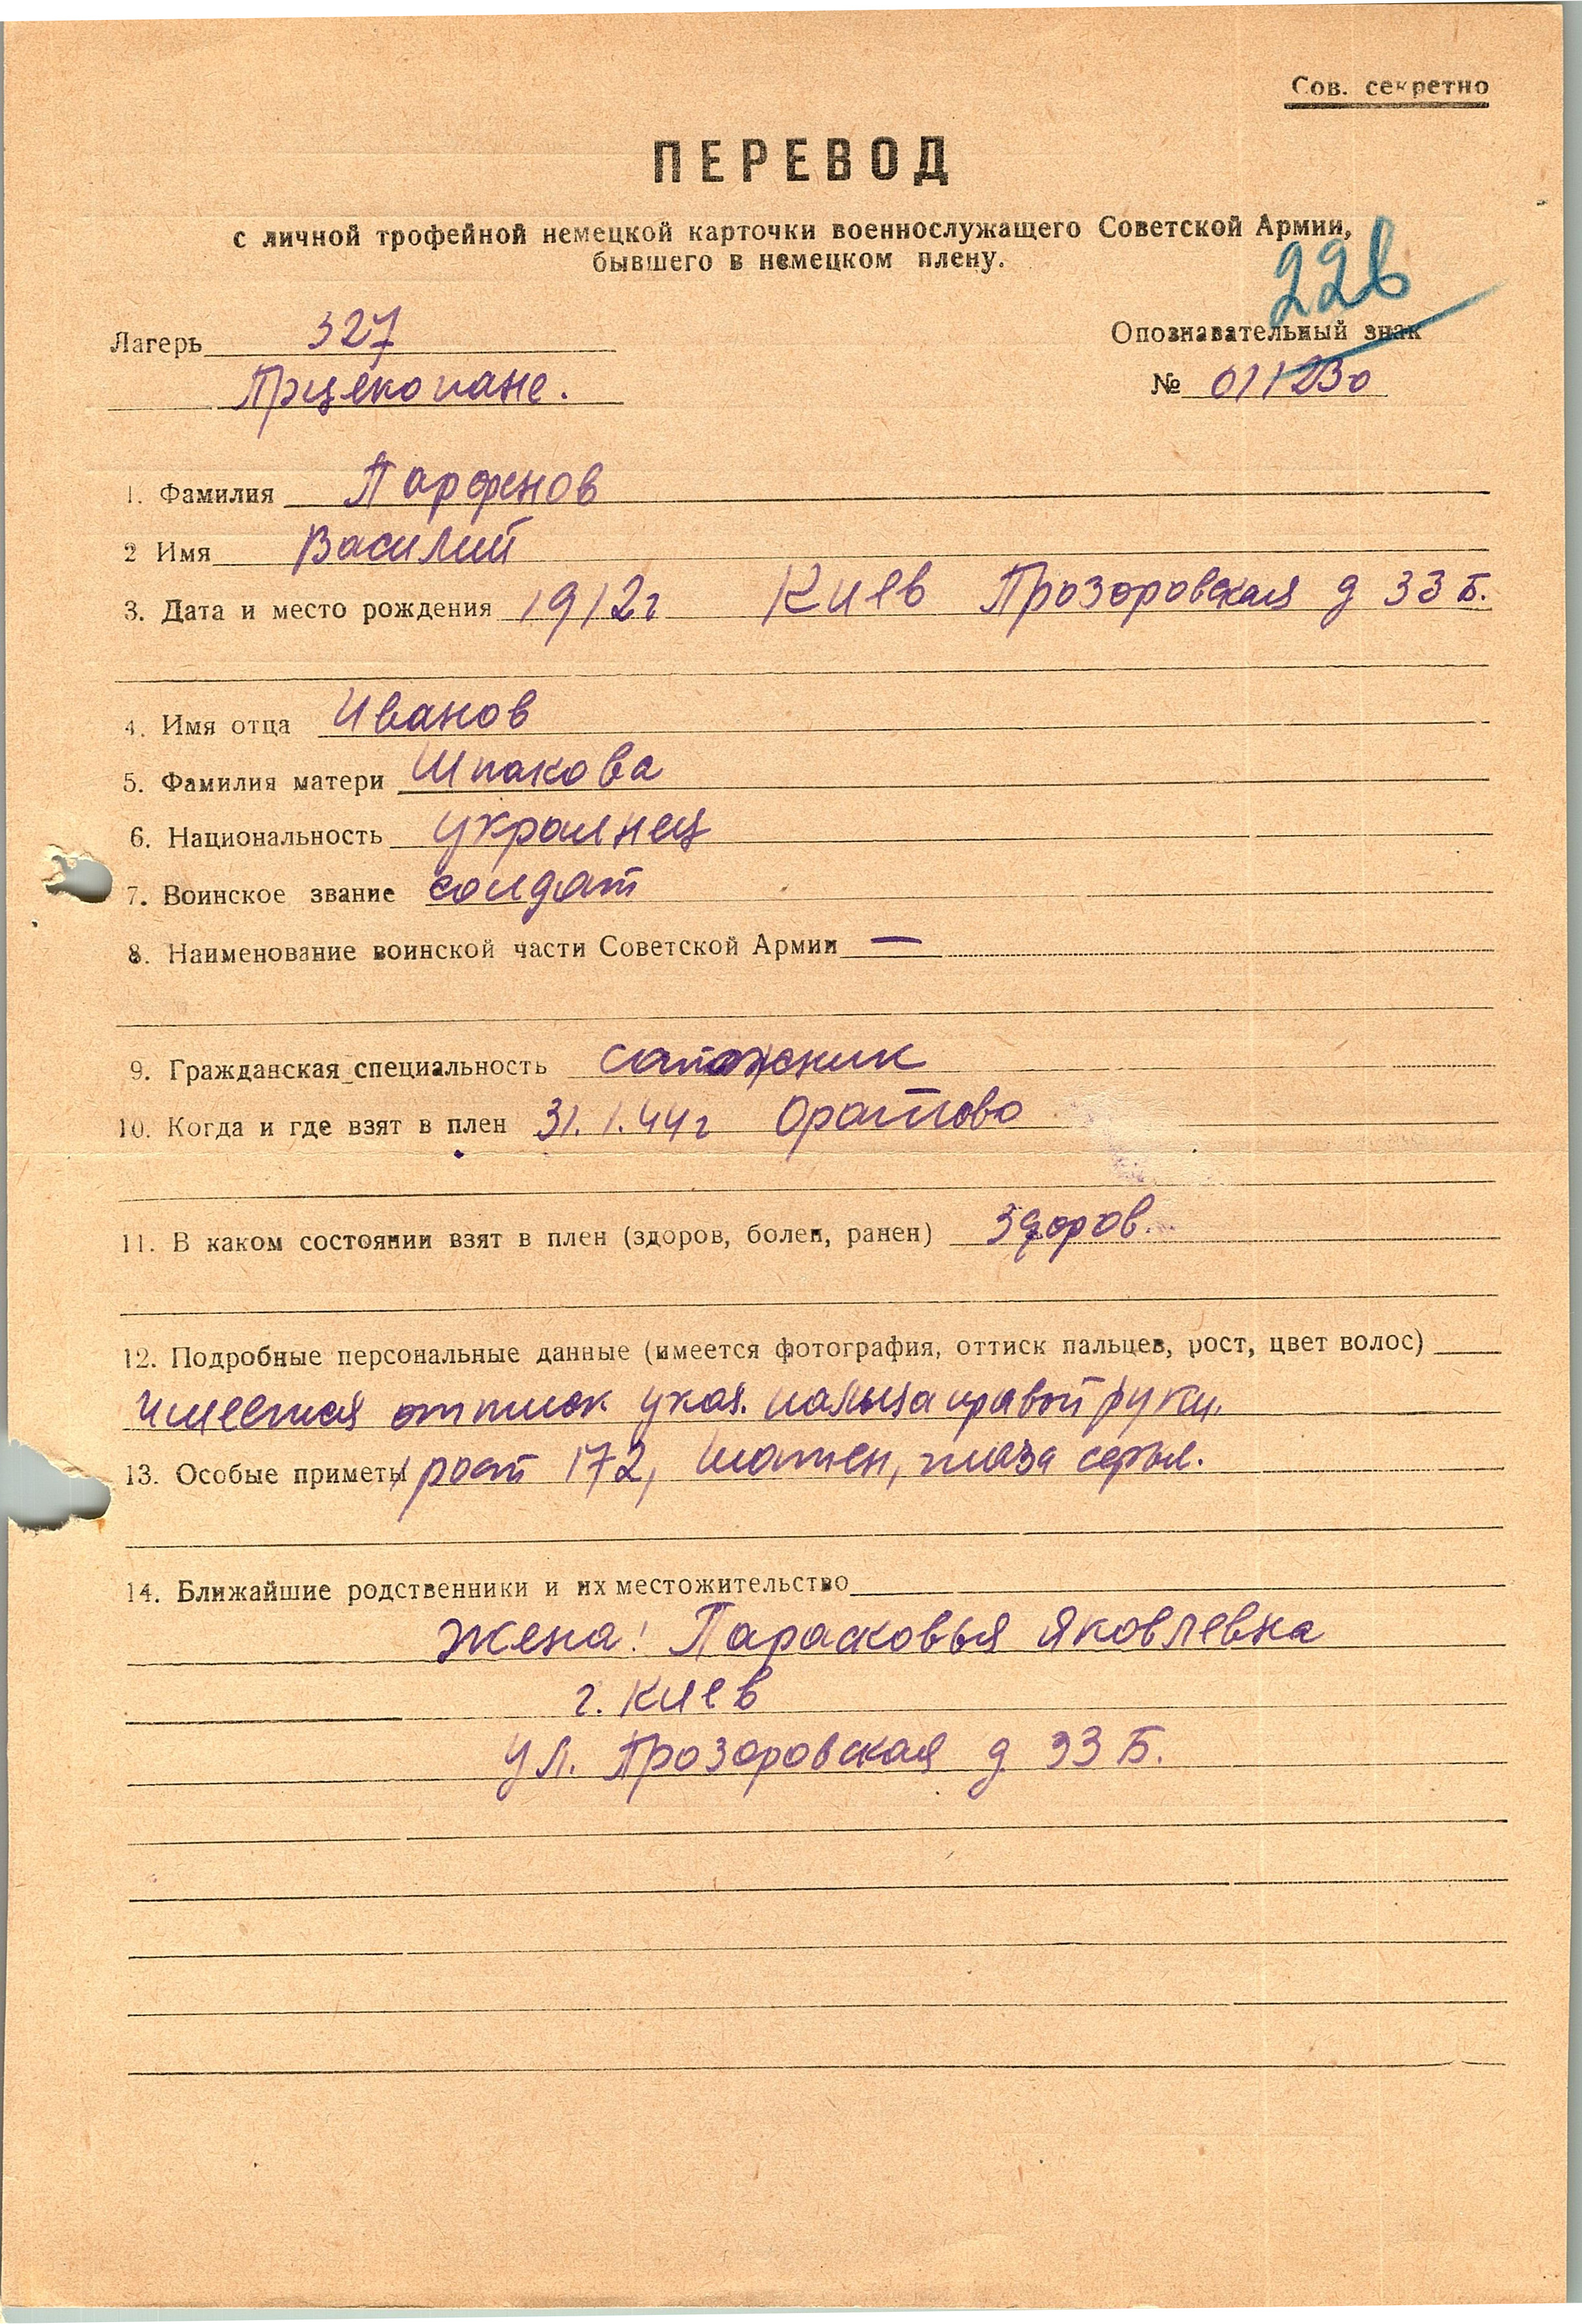 Сов. секретно
ПЕРЕВОД
с личной трофейной немецкой карточки военнослужащего Советской Армии,
бывшего в немецком плену.
22в
Лагерь 327
Опознавательный знак
Прцекопане.
№ 011230
1. Фамилия Парфенов
2 Имя Василий
3. Дата и место рождения 1912г Киев Прозоровская д 33 Б.
4. Имя отца Иванов
5. Фамилия матери Шпакова
6. Национальность украинец
7. Воинское звание солдат
8. Наименование воинской части Советской Армии —
9. Гражданская специальность сапожник
10. Когда и где взят в плен 31.1.44г Оратово
11. В каком состоянии взят в плен (здоров, болен, ранен) здоров.
12. Подробные персональные данные (имеется фотография, оттиск пальцев, рост, цвет волос)
Имеется оттиск указ. пальца правой руки.
13. Особые приметы рост 172, шатен, глаза серые.
14. Ближайшие родственники и их местожительство
Жена: Парасковья Яковлевна
г. Киев
ул. Прозоровская д 33 Б.